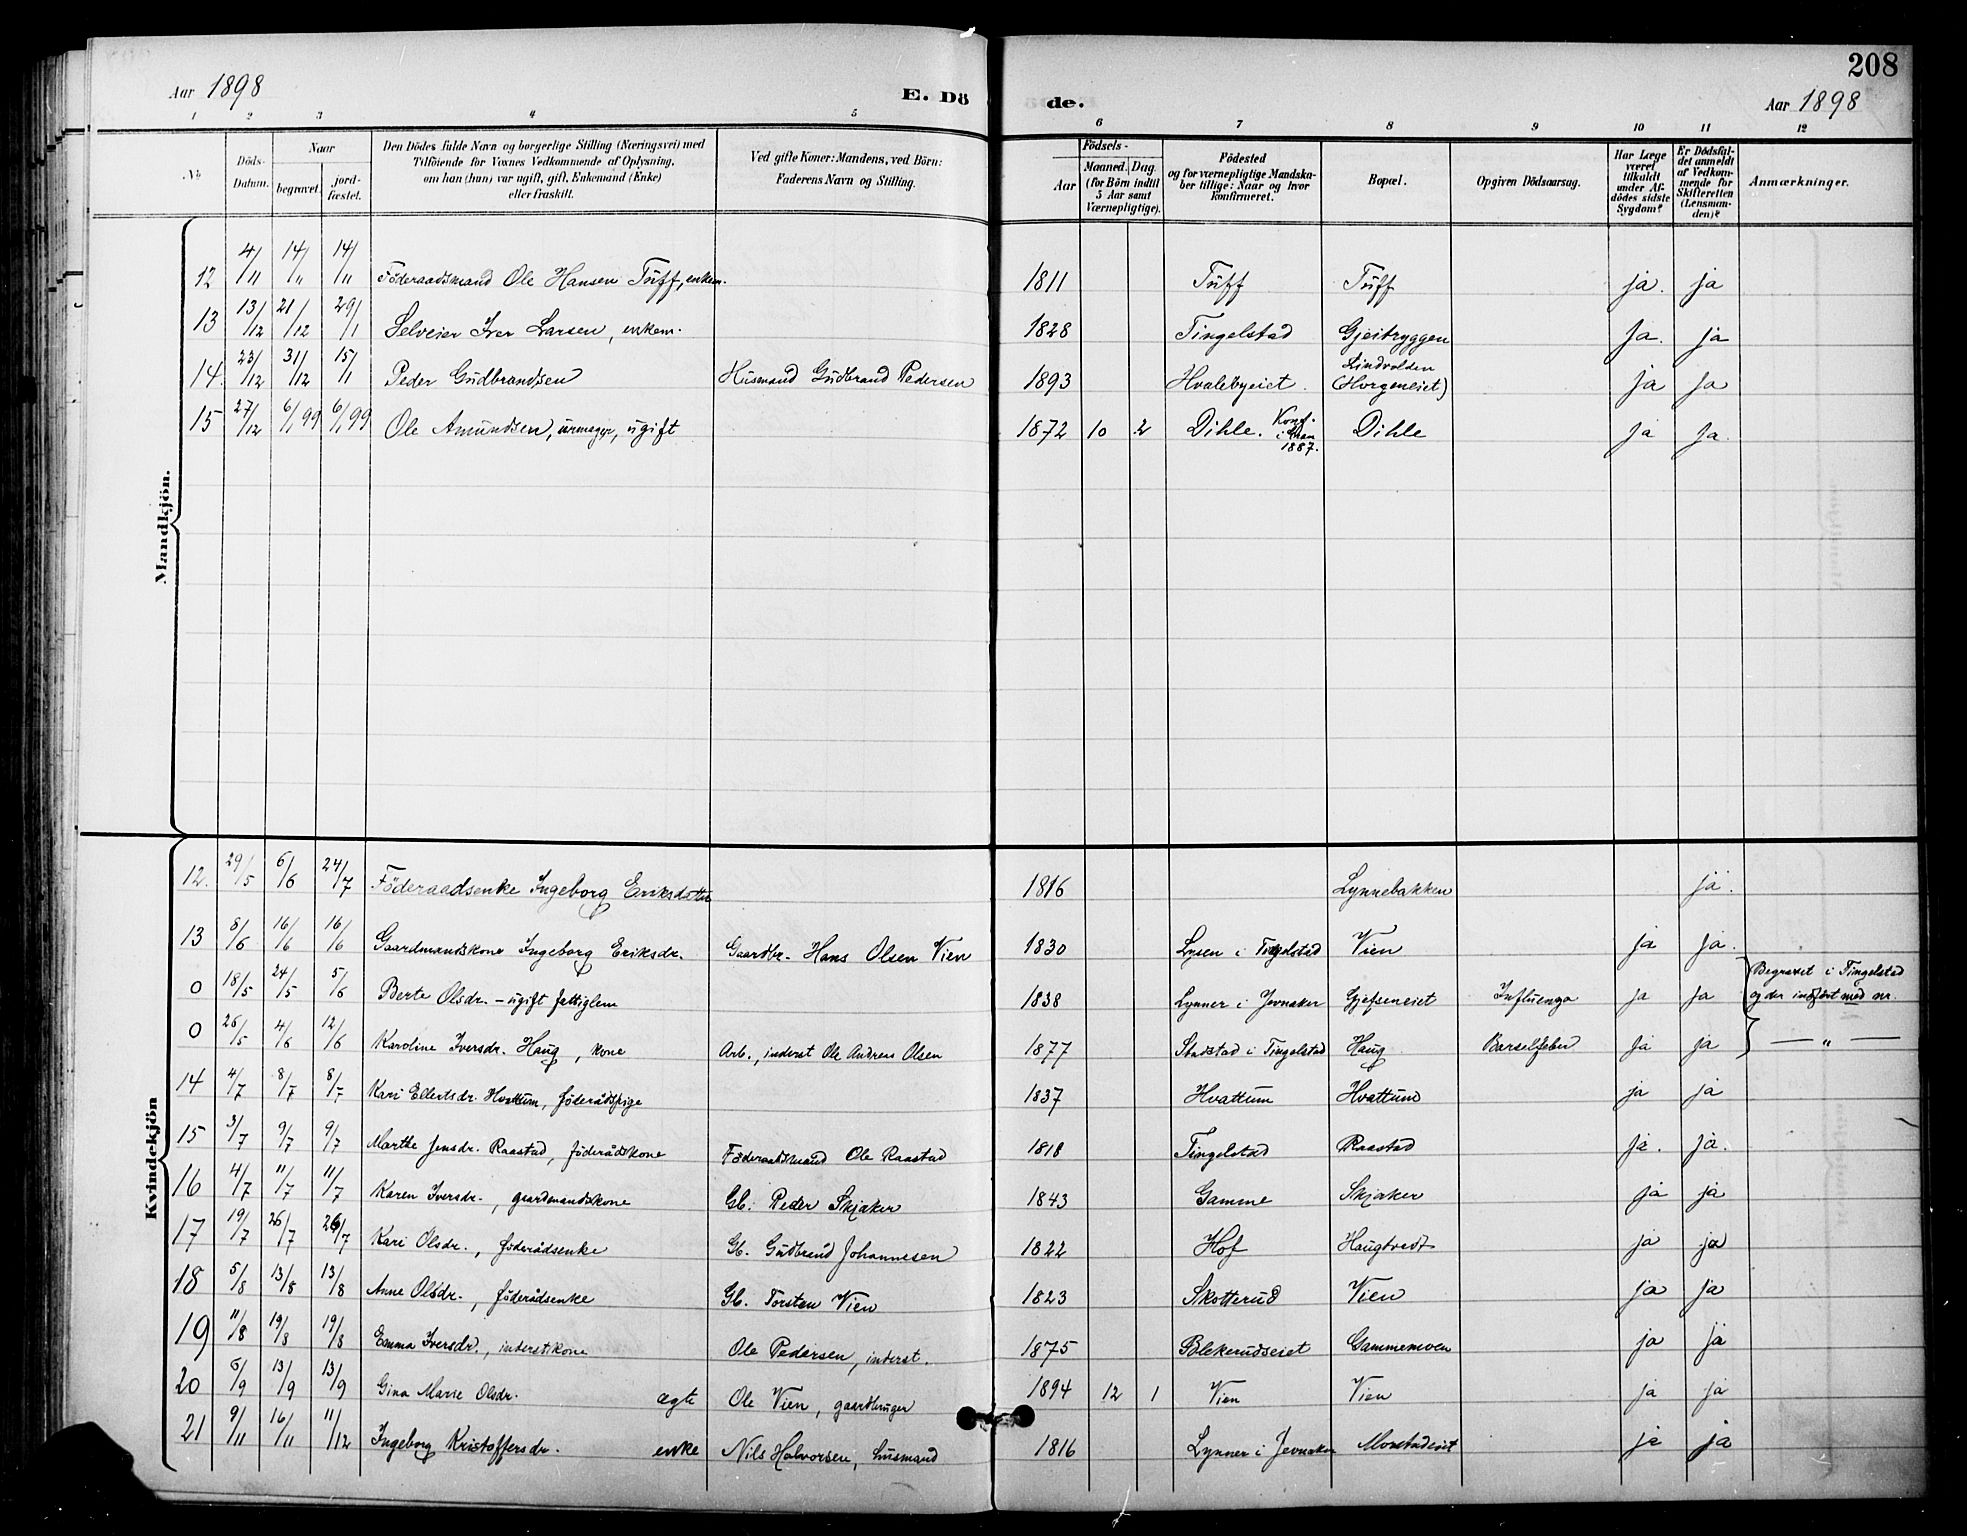 208
Aar 1898 E. Dö de. Aar 1898
1 2 3 4 5 6 7 8 9 10 11 12
No.
Döds-Datum.
Naar
begravet.
jord-fæstet.
Den Dödes fulde Navn og borgerlige Stilling (Næringsvei) med
Tilföiende for Voxnes Vedkommende af Oplysning,
om han (hun) var ugift, gift, Enkemand (Enke)
eller fraskilt.
Ved gifte Koner: Mandens, ved Börn:
Faderens Navn og Stilling.
Födsels-
Aar
Maaned. Dag.
(for Börn indtil
5 Aar samt
Værnepligtige).
Födested
og for værnepligtige Mandska-
ber tillige: Naar og hvor
konfirmeret.
Bopæl.
Opgiven Dödsaarsag.
Har Læge
været
tilkaldt
under Af-
dödes sidste
Sygdom?
Er Dödsfal-
det anmeldt
af Vedkom-
mende for
Skifteretten
(Lensman-
den)?
Anmærkninger.
Mandkjön.
12 4/11 14/11 14/11 Föderaadsmand Ole Hansen Tuff, enkem. 1811 Tuff Tuff ja. ja
13 13/12 21/12 29/1 Selveier Iver Larsen, enkem. 1828 Tingelstad Gjeibryggen ja. ja
14. 23/12 31/12 15/1 Peder Gudbrandsen Husmand Gudbrand Pedersen 1893 Hvalebyeiet. Lindvolden (Horgeneiet) ja ja
15 27/12 6/1 99 6/1 99 Ole Amundsen, urmager, ugift 1872 10 2 Dihle. Konf. i Gran 1887. Dihle ja ja.
Kvindekjön
12. 29/5 6/6 24/7 Föderaadsenke Ingeborg Eriksdatter 1816 Lynnebakken ja.
13 8/6 16/6 16/6 Gaardmandskone Ingeborg Eriksdr. Gaardbr. Hans Olsen Vien 1830 Lysen i Tingelstad Vien ja ja.
0 18/5 24/5 5/6 Berte Olsdr. - ugift fattiglem 1838 Lynner i Jevnaker Gjefseneiet Influenza ja ja Begravet i Tingelstad
og der indført med nr.
0 26/5 4/6 12/6 Karoline Iversdr. Haug, kone Arb., inderst Ole Andreas Olsen 1877 Stadstad i Tingelstad Haug Barselfeber ja ja — „ —
14 4/7 8/7 8/7 Kari Ellertsdr. Hvattum, föderådspige 1837 Hvattum Hvattum ja ja
15 3/7 9/7 9/7 Marthe Jensdr. Raastad, föderådskone Föderaadsmand Ole Raastad 1818 Tingelstad Raastad ja. ja.
16 4/7 11/7 11/7 Karen Iversdr., gaardmandskone Gb. Peder Skjaker 1843 Gamme Skjaker ja ja
17 19/7 26/7 26/7 Kari Olsdr., föderådsenke Gb. Gudbrand Johannesen 1822 Hof Haugtvedt ja ja
18 5/8 13/8 13/8 Anne Olsdr., föderådsenke Gb. Torsten Vien 1823 Skotterud Vien ja ja
19 11/8 19/8 19/8 Emma Iversdr., inderstkone Ole Pedersen, inderst. 1875 Blekerudseiet Gammemoen ja ja
20 6/9 13/9 13/9 Gina Marie Olsdr. ægte Ole Vien, gaardbruger 1894 12 1 Vien Vien ja ja
21 9/11 16/11 11/12 Ingeborg Kristoffersdr. enke Nils Halvorsen, husmand 1816 Lynner i Jevnaker ja ja